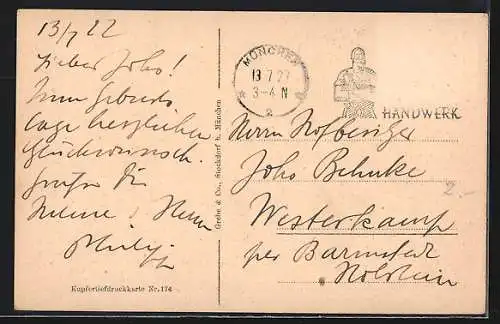 13/7 22
Lieber Johs!
Zum Geburts
tage herzlichen
Glückwunsch.
Grüße Dir
Helene
Philipp
Kupfertiefdruckkarte Nr. 174
Grebe & Co., Stockdorf b. München
MÜNCHEN
13 7 22
3-4 N
2
HANDWERK
Herrn Hofbesitzer
Johs Behnke
Westerkamp
per Barmstedt
Holstein
2.-